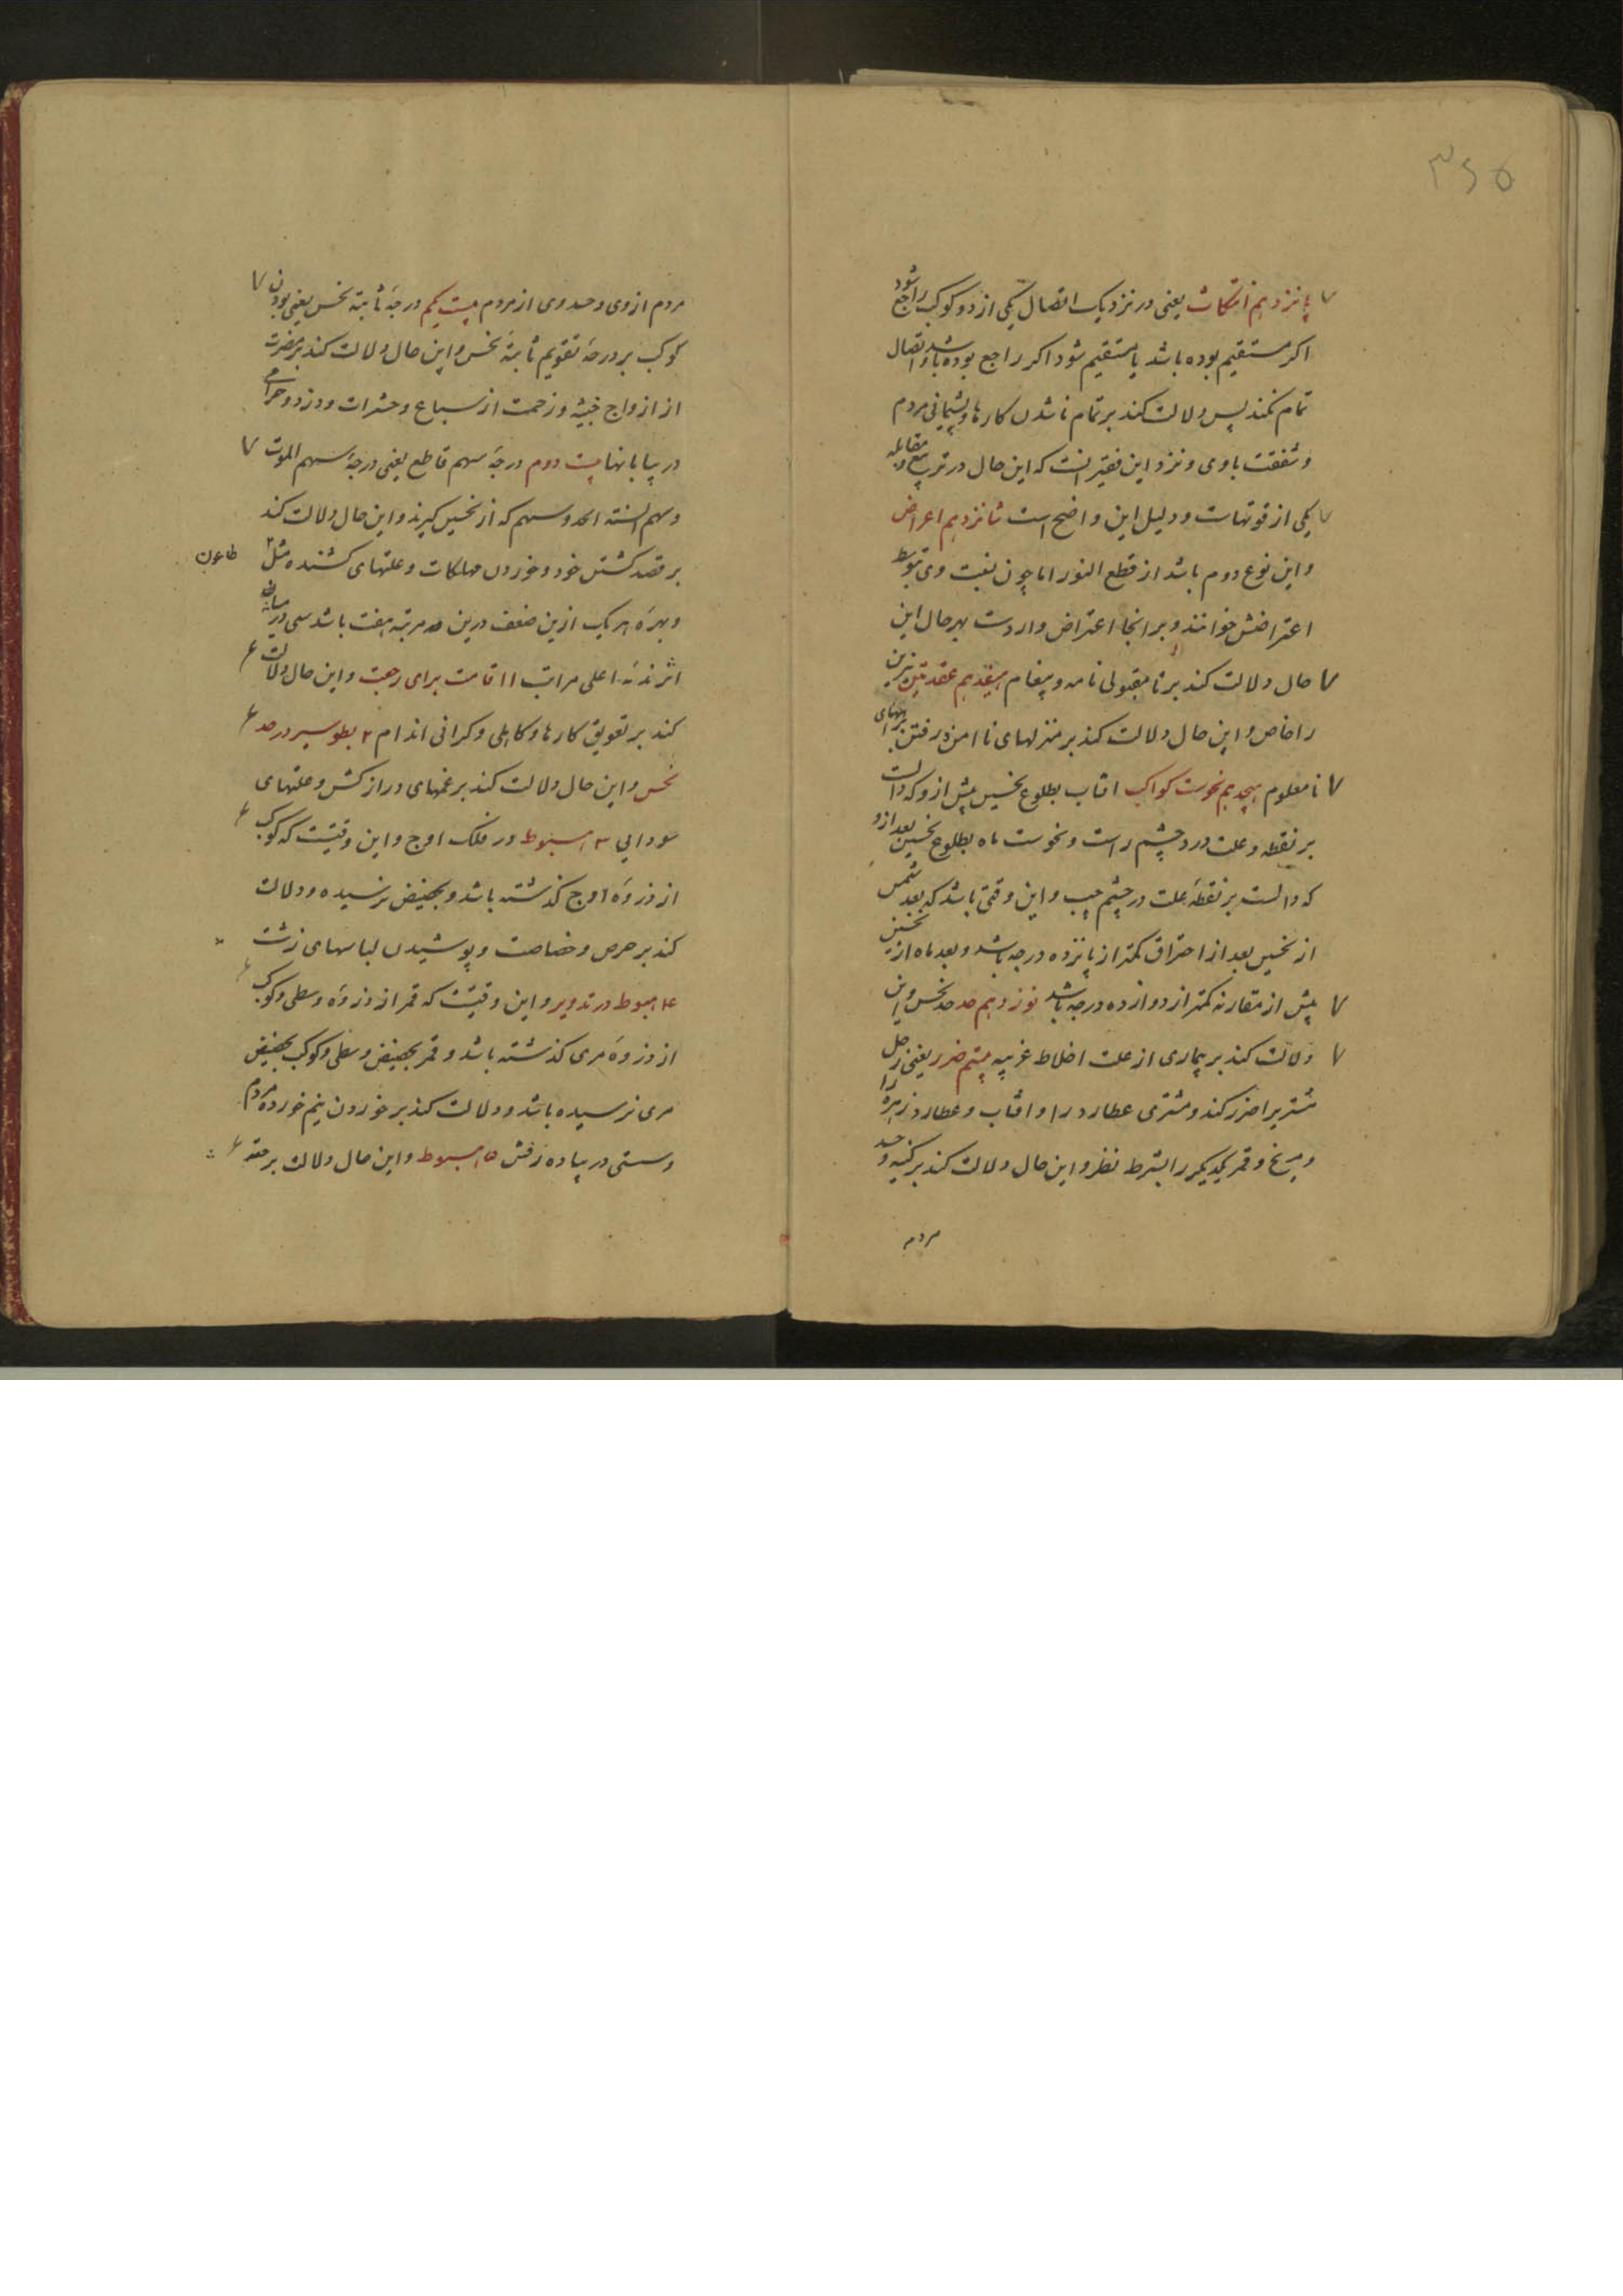 ۳۶۵
پانزدهم انتکاث یعنی در نزدیک اتصال یکی از دو کوکب راجع شود
اکر مستقیم بوده باشد یا مستقیم شود اکر راجع بوده باشد و اتصال
تمام نکند پس دلالت کند بر تمام ناشدن کارها و پشیمانی مردم
و شفقت باوی و نزد این فقیر آنست که این حال در تربیع و مقابله
یکی از قوتهاست و دلیل این واضح است شانزدهم اعراض
و این نوع دوم باشد از قطع النور اما چون نیست وی بتوسط
اعتراضش خوانند و بر انجا اعتراض واردست بهر حال این
حال دلالت کند بر نامقبولی نامه و پیغام هیفدهم عقدتین نیرین
را خاص و این حال دلالت کند بر منزلهای ناامن و رفتن براههای
نامعلوم هیجدهم نحوست کواکب افتاب بطلوع نحسین پیش ازو که دالست
بر نقطه و علت در چشم راست و نحوست ماه بطلوع نحسین بعد ازو
که دالست بر نقطه علت در چشم چپ و این وقتی باشد که بعد شمس
از نحسین بعد از احتراق کمتر از پانزده درجه باشد و بعد ماه از نحسین
پیش از مقارنه کمتر از دوازده درجه باشد نوزدهم حد نحس و این
دلالت کند بر بیماری از علت اخلاط غریبه بیستم ضرر یعنی زحل
مشتریرا ضرر کند و مشتری عطارد را و افتاب و عطارد زهره را
و مریخ و قمر یکدیکر را بشرط نظر و این حال دلالت کند بر کینه و حسد
مردم
مردم ازوی و حسد وی از مردم بیست یکم درجه ثابته نحس یعنی بودن
کوکب بر درجه تقویم ثابته نحس و این حال دلالت کند بر مضرت
از ازواج خبیثه و زحمت از سباع و حشرات و دزد و حرامی
در بیابانها بیست دوم درجه سهم قاطع یعنی درجه سهم الموت
و سهم السنه و سهم که از نحسین کیرند و این حال دلالت کند
بر قصد کشتن خود و خوردن مهلکات و علتهای کشنده مثل
طاعون
و بهره هر یک ازین ضعف درین مرتبه هفت باشد سی در میانه
اثر نه اعلی مراتب ۱ اقامت برای رجعت و این حال دلالت
کند بر تعویق کارها و کاهلی و کرانی اندام ۲ بطو سیر در حد
نحس و این حال دلالت کند بر غمهای دراز کش و علتهای
سودایی ۳ هبوط در فلک اوج و این وقتیست که کوکب
از ذروه اوج کذشته باشد و بحضیض نرسیده و دلالت
کند بر حرص و خصاصت و پوشیدن لباسهای زشت
۴ هبوط در تدویر و این وقتیست که قمر از ذروه وسطی و کوکب
از ذروه مرئی کذشته باشد و قمر بحضیض وسطی و کوکب بحضیض
مرئی نرسیده باشد و دلالت کند بر خوردن نیم خورده مردم
و سستی در پیاده رفتن ۵ هبوط و این حال دلالت بر